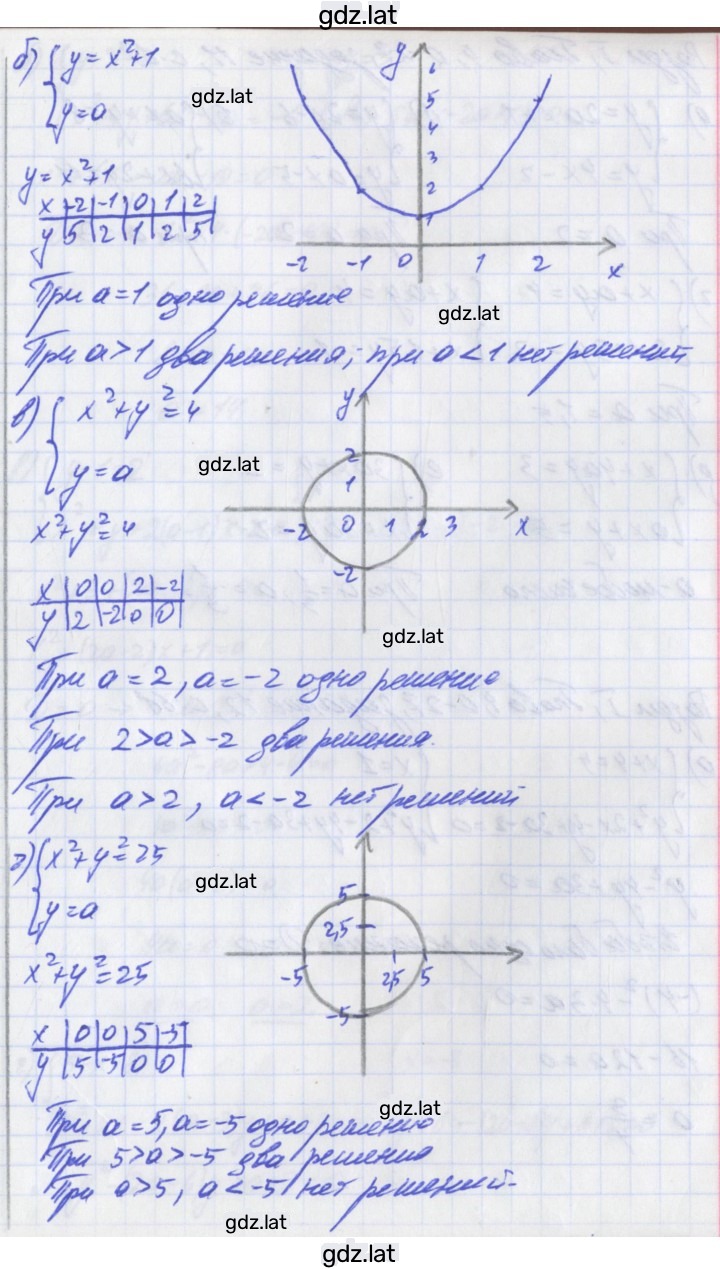 gdz.lat
б) { y = x²+1
y = a
gdz.lat
y = x²+1
x | -2 | -1 | 0 | 1 | 2
y | 5 | 2 | 1 | 2 | 5
y
6
5
4
3
2
1
-2 -1 0 1 2 x
При a = 1 одно решение
gdz.lat
При a > 1 два решения, при a < 1 нет решений
в) { x²+y² = 4
y = a
gdz.lat
x²+y² = 4
y
2
1
-2 0 1 2 3 x
-2
x | 0 | 0 | 2 | -2
y | 2 | -2 | 0 | 0
gdz.lat
При a = 2, a = -2 одно решение
При 2 > a > -2 два решения.
При a > 2, a < -2 нет решений
г) { x²+y² = 25
y = a
gdz.lat
x²+y² = 25
5
2,5
-5 2,5 5
-5
x | 0 | 0 | 5 | -5
y | 5 | -5 | 0 | 0
gdz.lat
При a = 5, a = -5 одно решение
При 5 > a > -5 два решения
При a > 5, a < -5 нет решений.
gdz.lat
gdz.lat